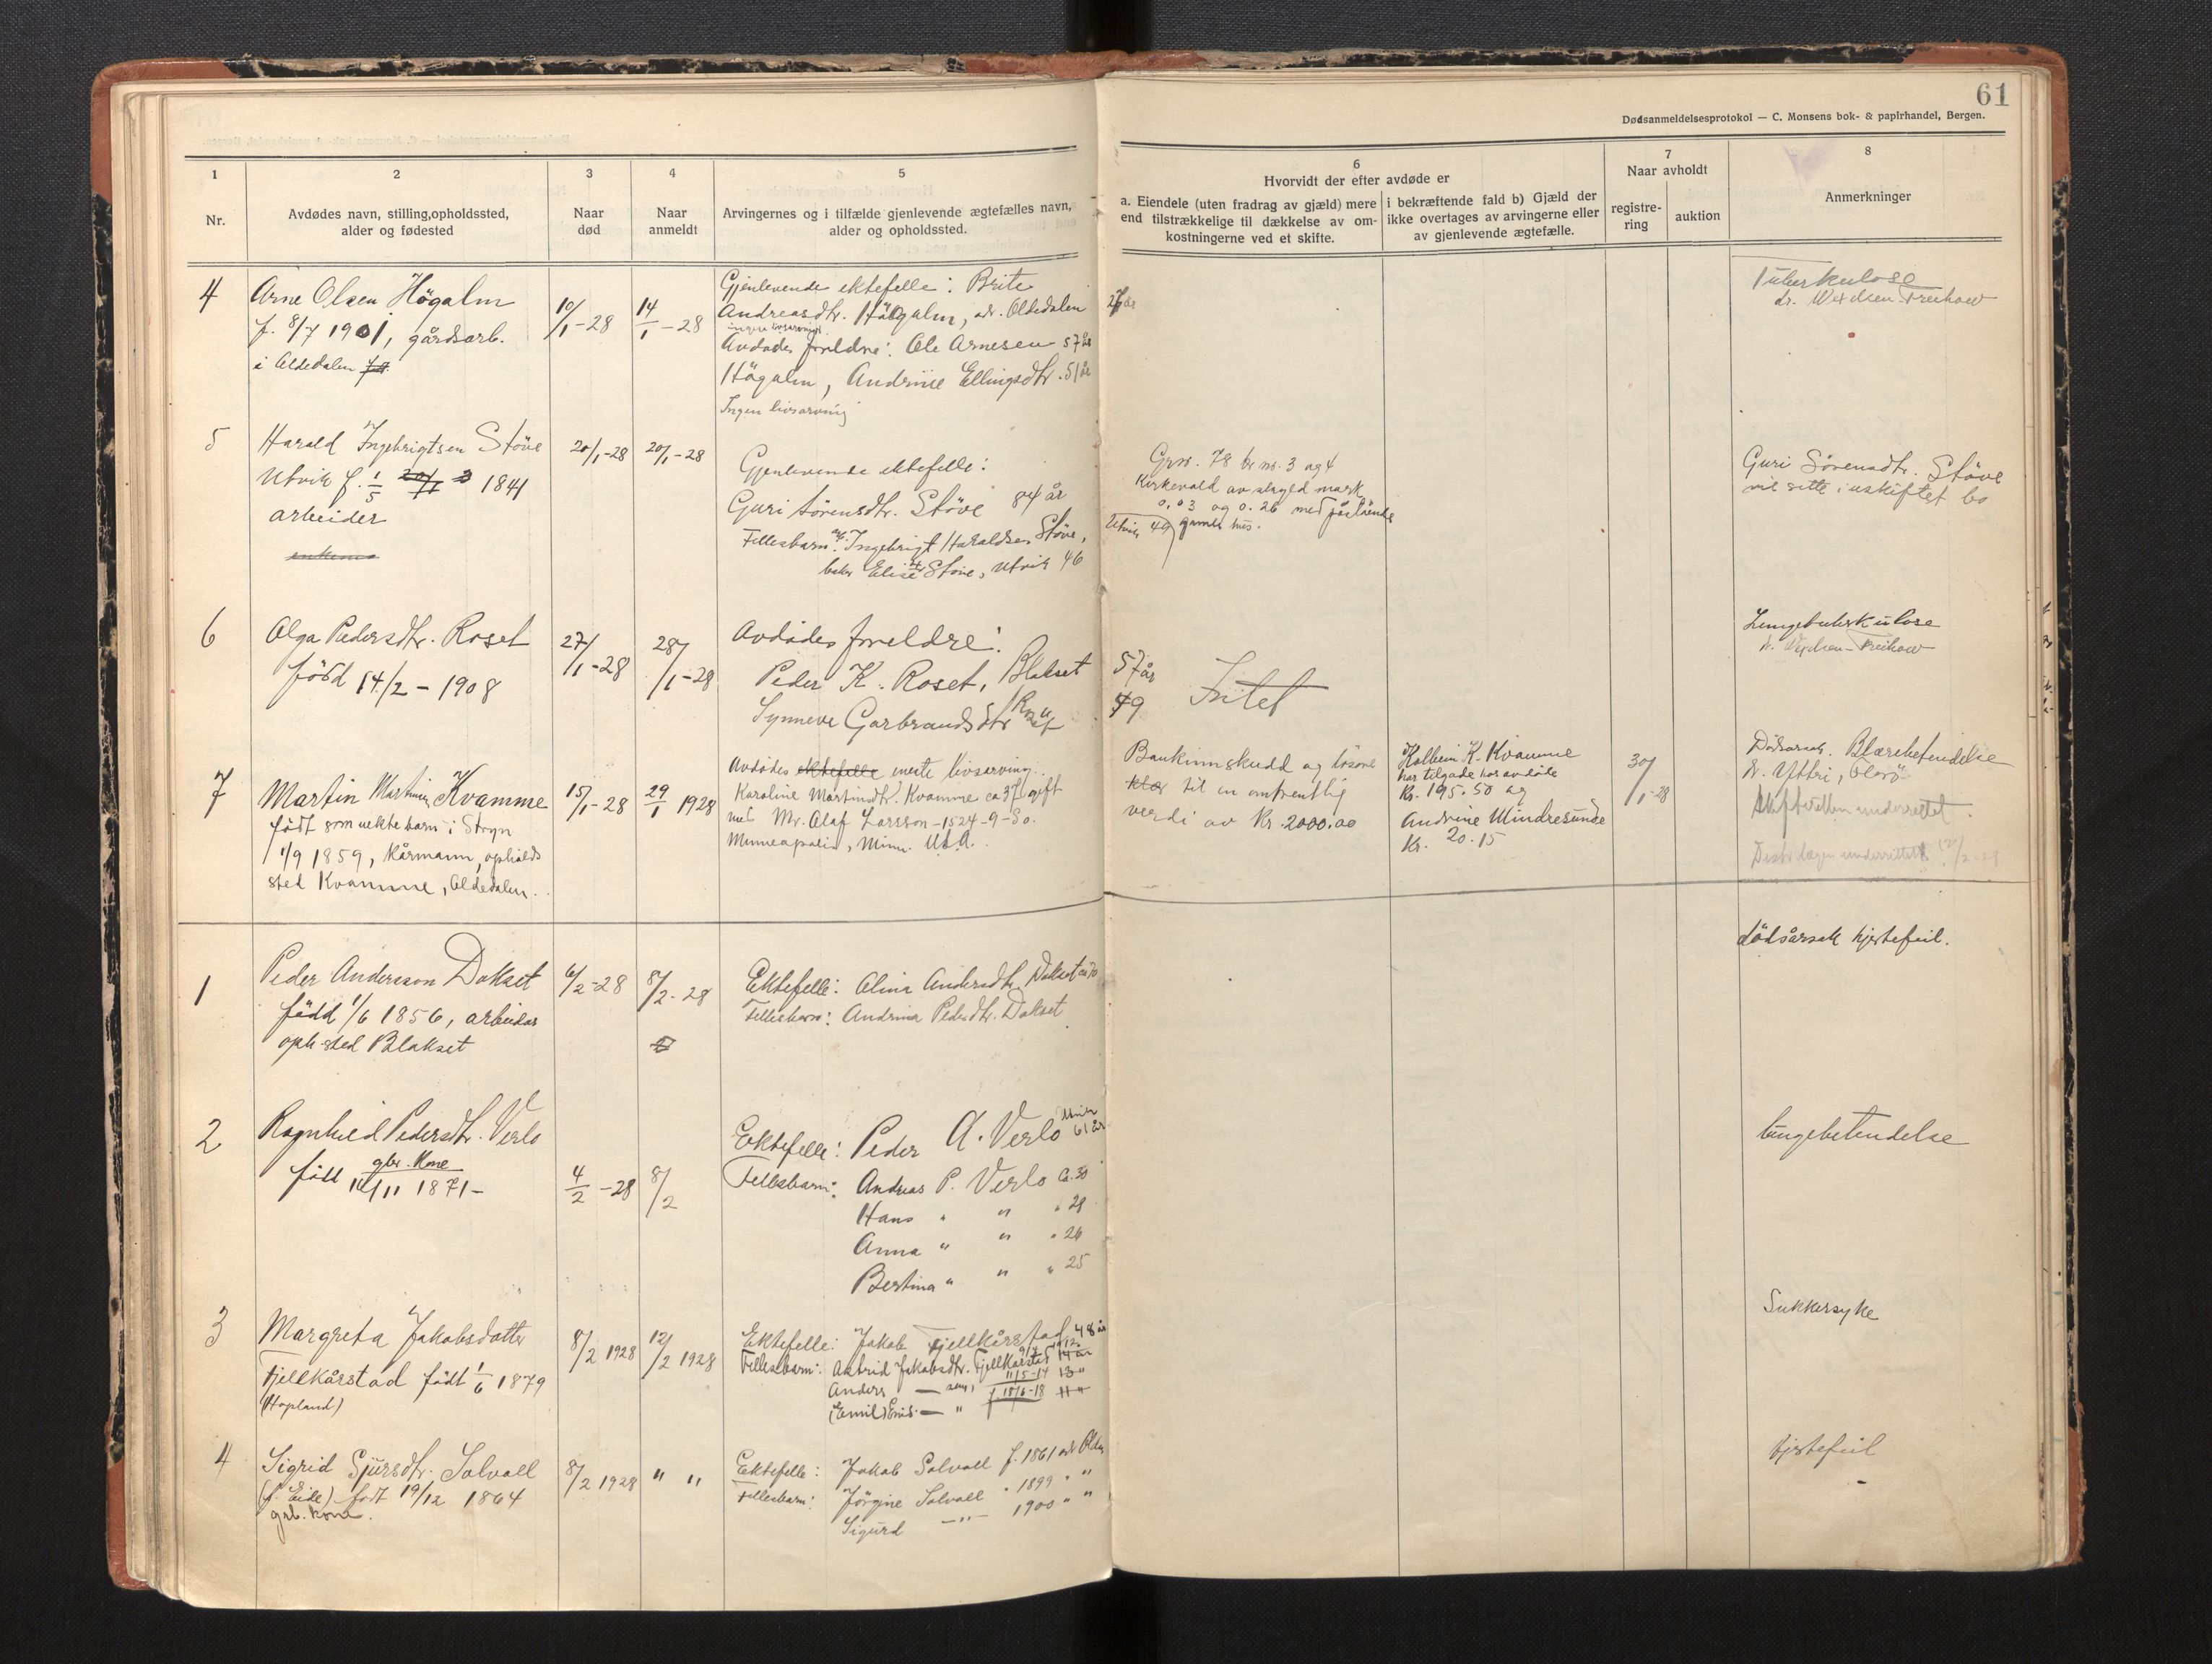 61
Dødsanmeldelsesprotokol — C. Monsens bok- & papirhandel, Bergen.
1
Nr.
2
Avdødes navn, stilling, opholdssted,
alder og fødested
3
Naar
død
4
Naar
anmeldt
5
Arvingernes og i tilfælde gjenlevende ægtefælles navn,
alder og opholdssted.
6
Hvorvidt der efter avdøde er
a. Eiendele (uten fradrag av gjæld) mere
end tilstrækkelige til dækkelse av om-
kostningerne ved et skifte.
i bekræftende fald b) Gjæld der
ikke overtages av arvingerne eller
av gjenlevende ægtefælle.
7
Naar avholdt
registre-
ring
auktion
8
Anmerkninger
4
Arne Olsen Högalm
f. 8/7 1901, gårdsarb.
i Oldedalen
10/1-28
14/1-28
Gjenlevende ektefelle: Brite
Andreasdtr. Högalm, adr. Oldedalen 27 år
ingen livsarving
Avdødes foreldre: Ole Arnesen 57 år
Högalm, Andrine Ellingsdtr. 51 år
Ingen livsarving
Tuberkulose
dr. Wexelsen-Freihow
5
Harald Ingebrigtsen Stöve
Utvik f. 1/5 1841
arbeider
enkemo
20/1-28
20/1-28
Gjenlevende ektefelle:
Guri Sörensdtr. Stöve 84 år
Fellesbarn: Ingebrigt Haraldsen Stöve, Utvik 49
Elise Stöve, Utvik 46
Grnr. 78 br.nr. 3 og 4
Kirkevold av skyld mark
0.03 og 0.26 med påstående
gamle hus.
Guri Sörensdtr. Stöve
vil sitte i uskiftet bo
6
Olga Pedersdtr. Roset
född 14/2-1908
27/1-28
28/1-28
Avdödes foreldre:
Peder K. Roset, Blakset 57 år
Synneve Garbrandsdtr. Roset 49
Intet
Lungetuberkulose
dr. Wexelsen-Freihow
7
Martin Martinsen Kvamme
födt som uekte barn i Stryn
1/9 1859, kårmann, opholds
sted Kvamme, Oldedalen.
15/1-28
29/1 1928
Avdödes ektefelle eneste livsarving:
Karoline Martinsdtr. Kvamme ca 37 gift
med Mr. Olaf Larsson-1524-9-So.
Minneapolis, Minn. U.S.A.
Bankinnskudd og lösöre
klær til en omtrentlig
verdi av Kr. 2000.00
Kolbein K. Kvamme
har tilgode hos avdöde
Kr. 195.50 og
Andrine Mindresunde
Kr. 20.15
30/1-28
Dödsårsak. Blærebetendelse
dr. Yttri,
Skifteretten underrettet.
1
Peder Andersson Dokset
född 1/6 1856, arbeider
oph.sted Blakset
6/2-28
8/2-28
Ektefelle: Alina Andersdtr. Dokset ca 70
Fellesbarn: Andrina Pedersdtr. Dokset
dödsårsak hjertefeil.
2
Ragnhild Pedersdtr. Verlo
gbr. Kone
född 11/11 1871-
4/2-28
8/2
Ektefelle: Peder A. Verlo 61 år
Fellesbarn: Andreas P. Verlo Ca. 30
Hans " " " 28
Anna " " " 26
Bertina " " " 25
lungebetendelse
3
Margreta Jakobsdatter
Fjellkårstad född 1/6 1879
(Hopland)
8/2 1928
12/2 1928
Ektefelle: Jakob Fjellkårstad 48 år
Fellesbarn: Astrid Jakobsdtr. Fjellkårstad 9/2 1912 14 år
Anders — sen, 11/5-14 13 "
(Emil) — " f. 18/6-18 11 "
Sukkersyke
4
Sigrid Sjursdtr. Solvoll
(f. Eide) födt 19/12 1864
grb. kone.
8/2 1928
" "
Ektefelle: Jakob Solvoll f. 1861 adr Olden
Fellesbarn: Jörgine Solvoll " 1899 " "
Sigurd —"— 1900 " "
hjertefeil